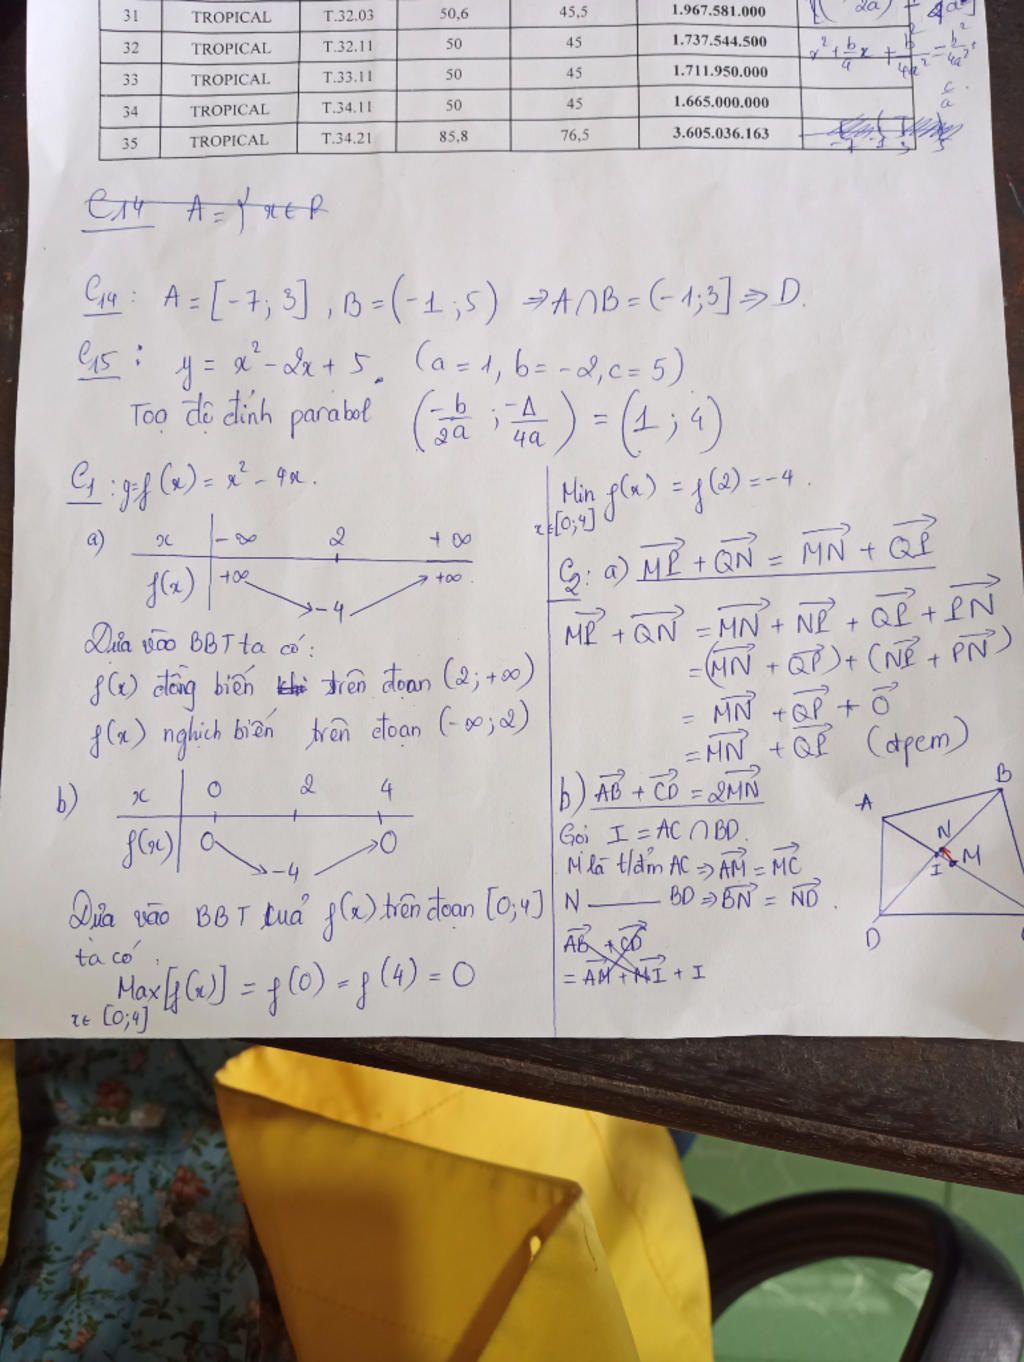 31 TROPICAL T.32.03 50,6 45,5 1.967.581.000
32 TROPICAL T.32.11 50 45 1.737.544.500
33 TROPICAL T.33.11 50 45 1.711.950.000
34 TROPICAL T.34.11 50 45 1.665.000.000
35 TROPICAL T.34.21 85,8 76,5 3.605.036.163
x² + b/a x + b²/4a² = b²/4a²
c/a
C14 A = { x ∈ R
C14 : A = [-7; 3] , B = (-1 ; 5) ⇒ A∩B = (-1;3] ⇒ D.
C15 : y = x² - 2x + 5. (a = 1, b = -2, c = 5)
Toạ độ đỉnh parabol (-b/2a ; -Δ/4a) = (1 ; 4)
C1 : y=f(x) = x² - 4x.
a) x -∞ 2 +∞
f(x) +∞ -4 +∞.
Dựa vào BBT ta có:
f(x) đồng biến khi trên đoạn (2; +∞)
f(x) nghịch biến trên đoạn (-∞; 2)
b) x 0 2 4
f(x) 0 -4 0
Dựa vào BBT cuả f(x) trên đoạn [0;4]
ta có,
Max[f(x)] = f(0) = f(4) = 0
x∈ [0;4]
Min f(x) = f(2) = -4.
x∈[0;4]
C2: a) MP⃗ + QN⃗ = MN⃗ + QP⃗
MP⃗ + QN⃗ = MN⃗ + NP⃗ + QP⃗ + PN⃗
= (MN⃗ + QP⃗) + (NP⃗ + PN⃗)
= MN⃗ + QP⃗ + 0⃗
= MN⃗ + QP⃗ (đpcm)
b) AB⃗ + CD⃗ = 2MN⃗
Gọi I = AC ∩ BD.
M là t/điểm AC ⇒ AM⃗ = MC⃗
N —— BD ⇒ BN⃗ = ND⃗.
AB⃗ + CD⃗
= AM⃗ + MI⃗ + I
A B
N
I M
D